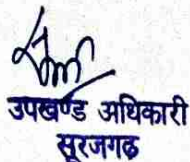 उपखण्ड अधिकारी
सूरजगढ